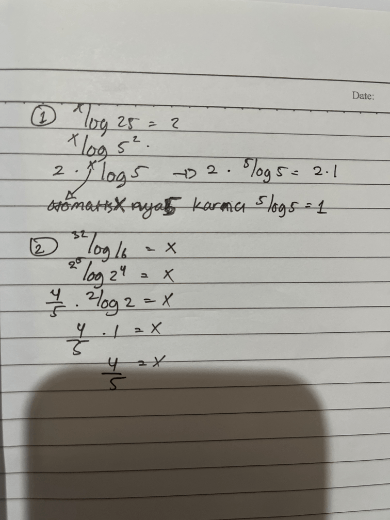 Date:
① ˣlog 25 = 2
ˣlog 5².
2 · ˣlog 5 → 2 · ⁵log 5 = 2·1
otomatis X nya 5 karna ⁵log 5 = 1
② ³²log 16 = X
2⁵log 2⁴ = X
4/5 · ²log 2 = X
4/5 · 1 = X
4/5 = X